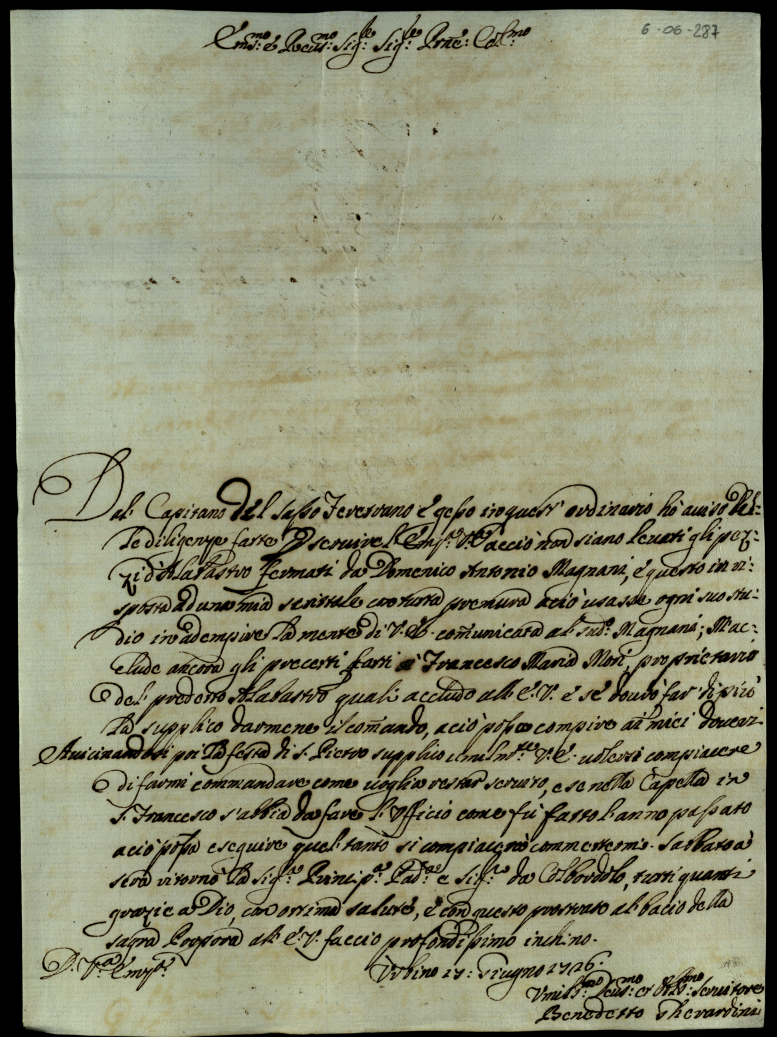 6-06-287
Em:mo e Reu:mo Sig:re Sig:re Prne: Col:mo
Dal Capitano del Sasso Feretrano è in quest' ordinario hò auiso del-
le diligenze fatte acciò non siano leuati gli pez-
zi d'Alabastro fermati da Domenico Antonio Magnani, e questo in ri-
sposta ad una mia scrittale con tutta premura acciò usasse ogni suo stu-
dio in adempire la mente di V: E: comunicata al sud:o Magnani; Mac-
clude ancora gli precetti fatti a Francesco Maria Mori, proprietario
del predetto Alabastro quali accludo all' E: V: e se dourò far di più
la supplico darmene il comando, acciò possa compire a i miei doueri
Auicinandosi poi la festa di S: Pietro supplico V: E: uolersi compiacere
di farmi commandare come uoglia restar seruito, e se nella Capella in
S: Francesco s'abbia da fare l'Vfficio come fù fatto l'anno passato
acciò possa eseguire quel tanto si compiacerà commettermi. Sabbato a
sera ritornò la Sig:ra Princip: Pad:a e Sig:ri da Colbordolo, tutti quanti
grazie a Dio, con ottima salute, e con questo prostrato al bacio della
sagra Porpora all' E: V: faccio profondissimo inchino.
D: V:ra Emin: Vrbino 17: Giugno 1726:
Vmil:mo Deu:mo et Obl:mo Seruitore
Benedetto Gherardini